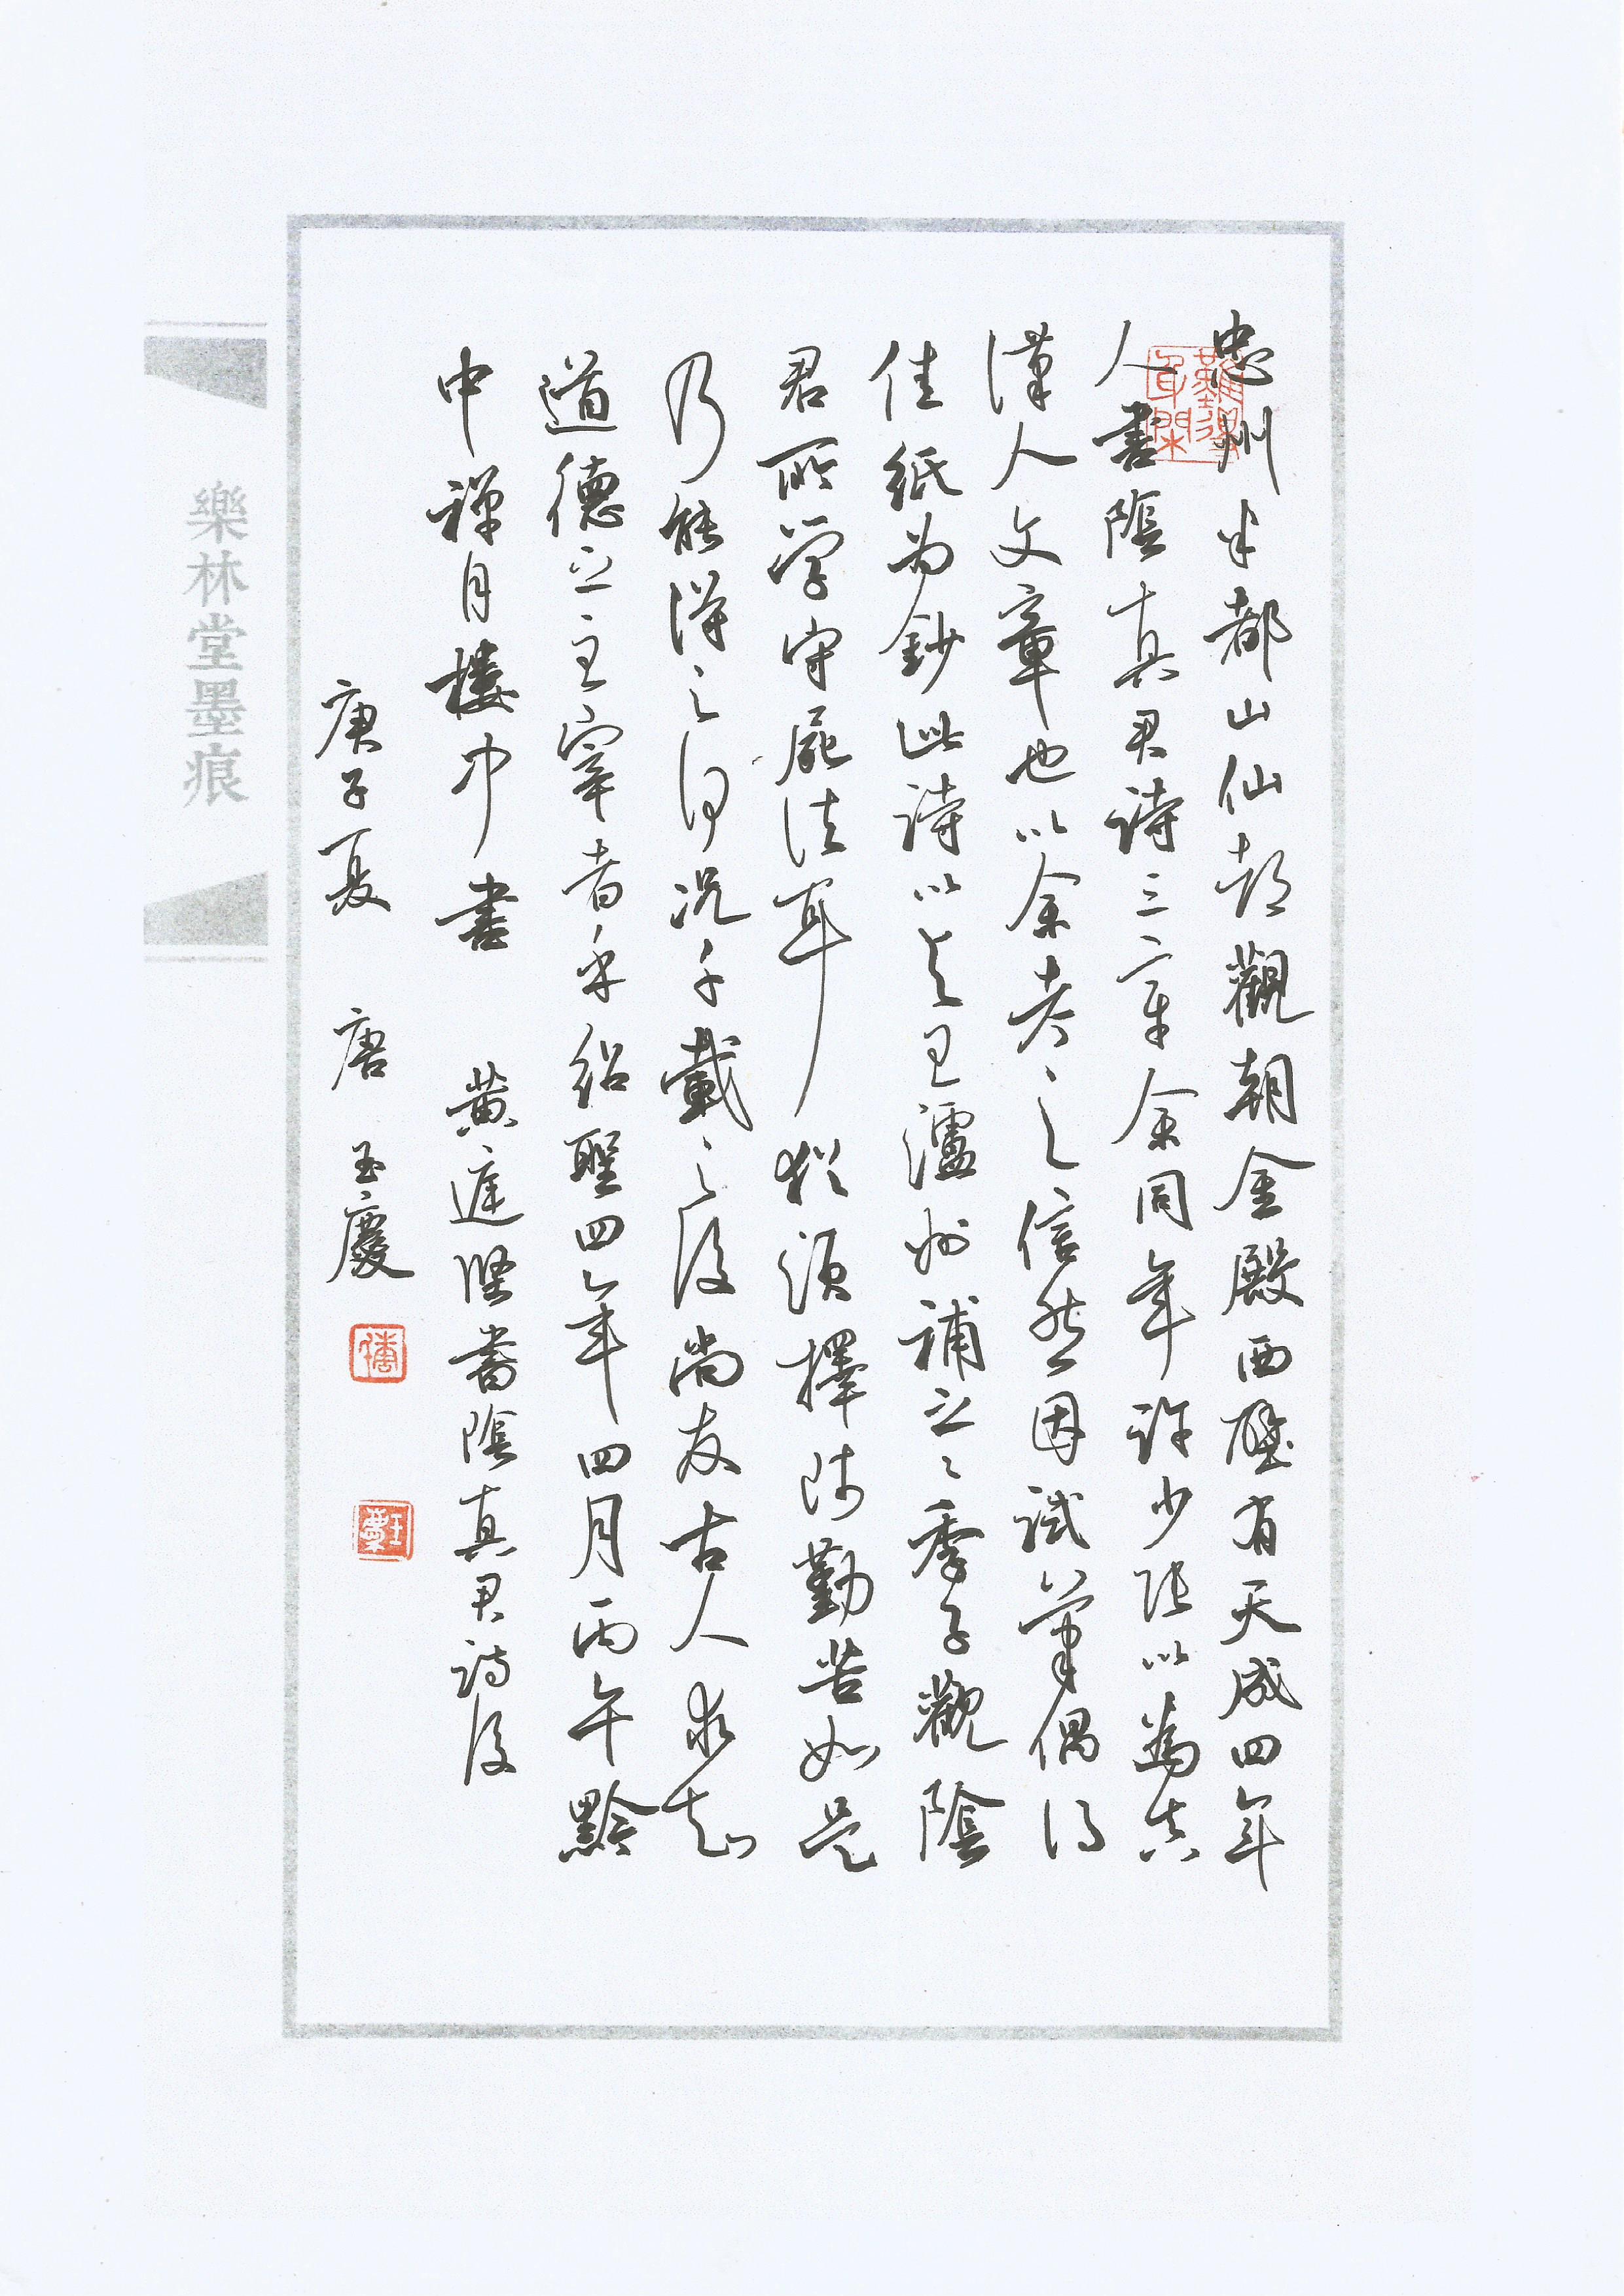 忠州丰都山仙都觀朝金殿西壁有天成四年
人書陰真君詩三章余同年許少張以為真
漢人文章也以余考之信然因試筆偶得
佳紙為鈔此詩以与王瀘州補之〻季子觀陰
君所學守屍法耳猶須擇師勤苦如是
乃能得之何況千載之後尚友古人求知
道德之主宰者乎紹聖四年四月丙午黔
中禪月樓中書 黄庭堅書陰真君詩後
庚子夏 唐玉慶
樂林堂墨痕